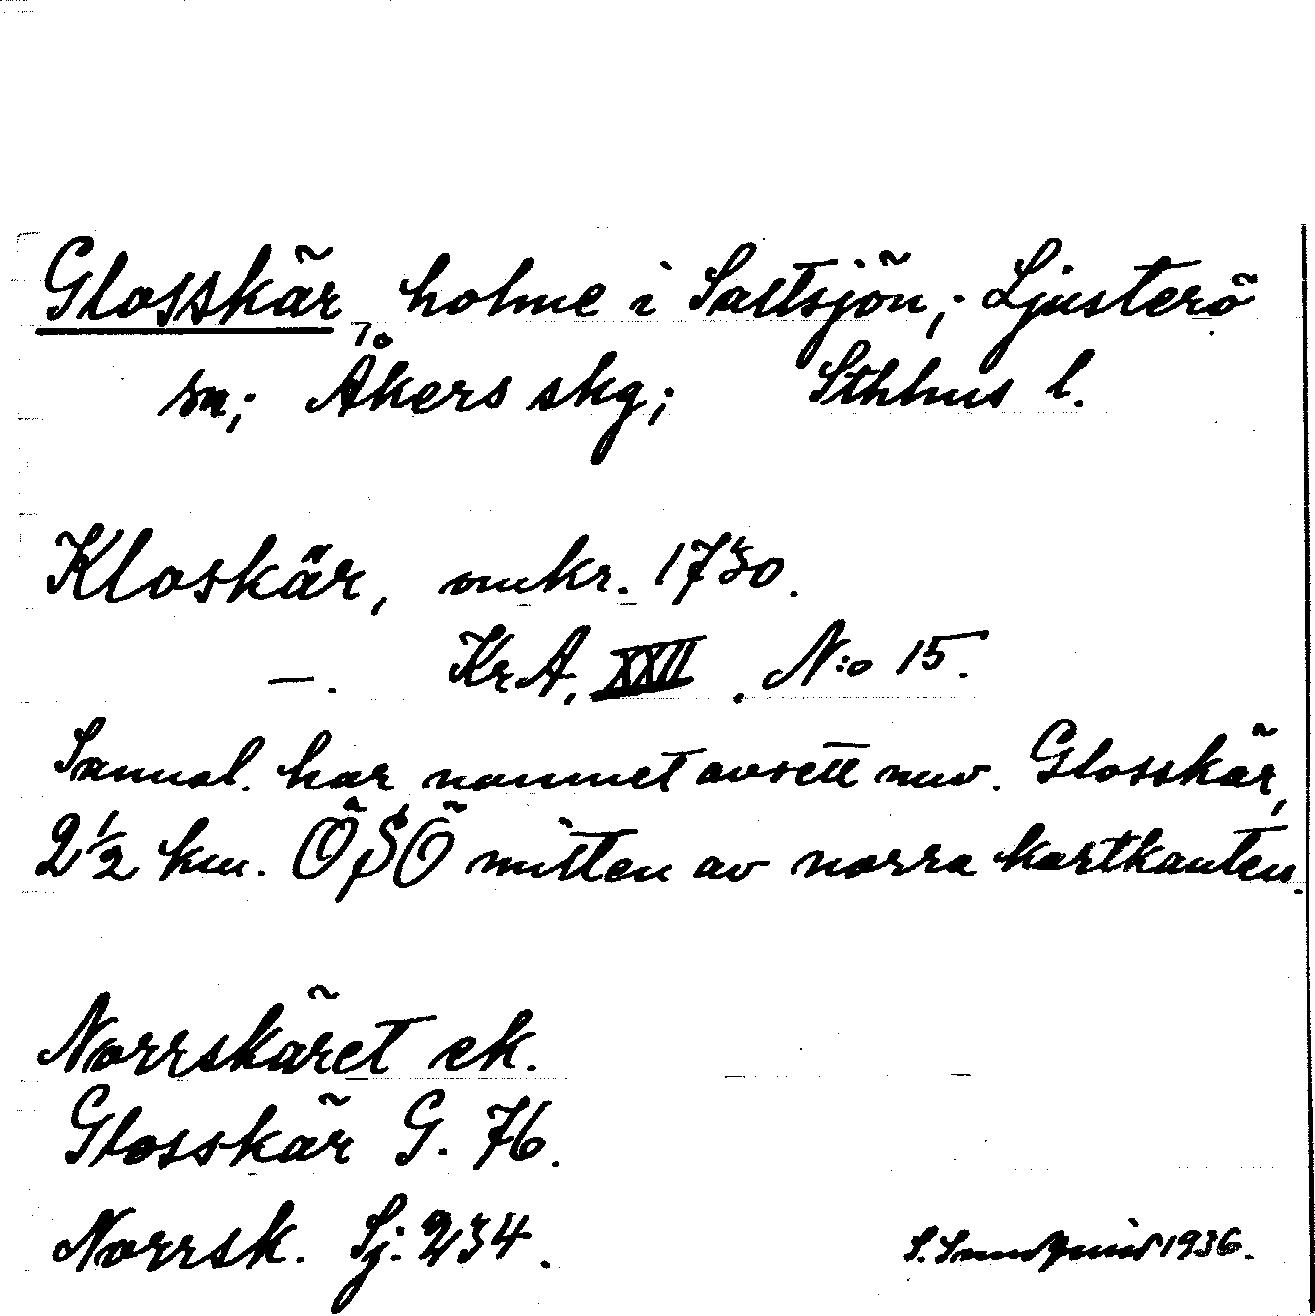 Glosskär, holme i Saltsjön; Ljusterö
sn; Åkers skg; Sthlms l.
Kloskär, omkr. 1730.
—. KrA, XXII. N:o 15.
Sannol. har namnet avsett nuv. Glosskär,
2½ km. ÖSÖ mitten av norra kartkanten.
Norrskäret ek.
Glosskär G. 76.
Norrsk. Sj. 234.
S. Sundquist 1936.